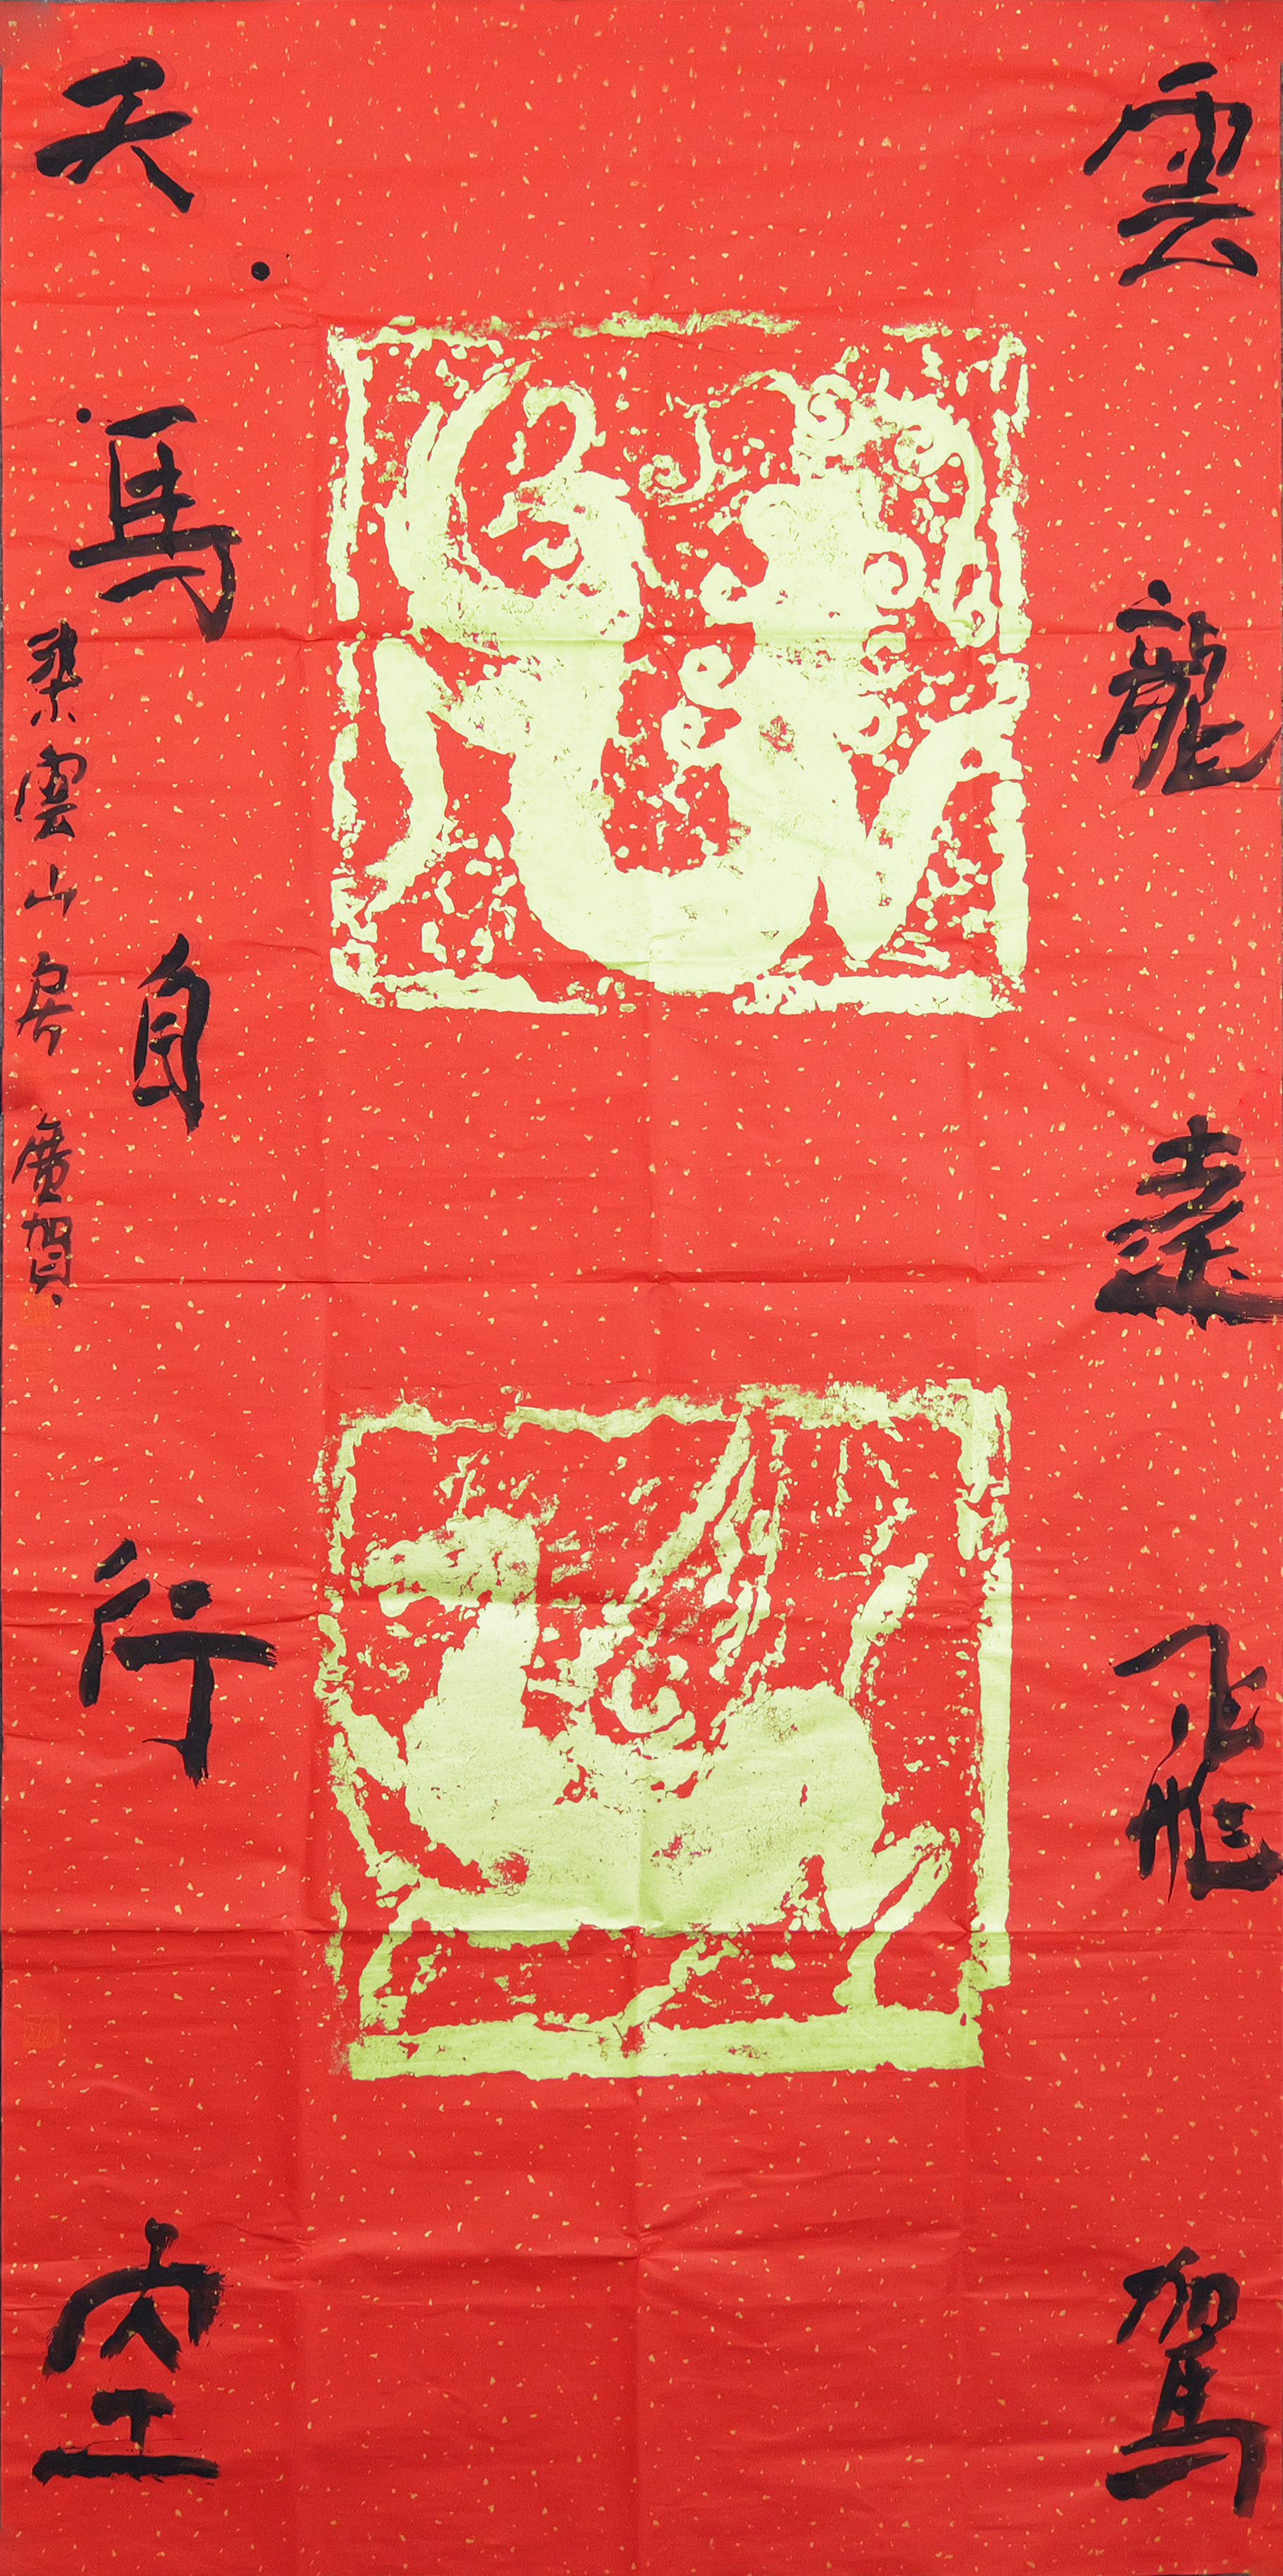 雲龍遠飛駕
天馬自行空
染雲山房廣賀